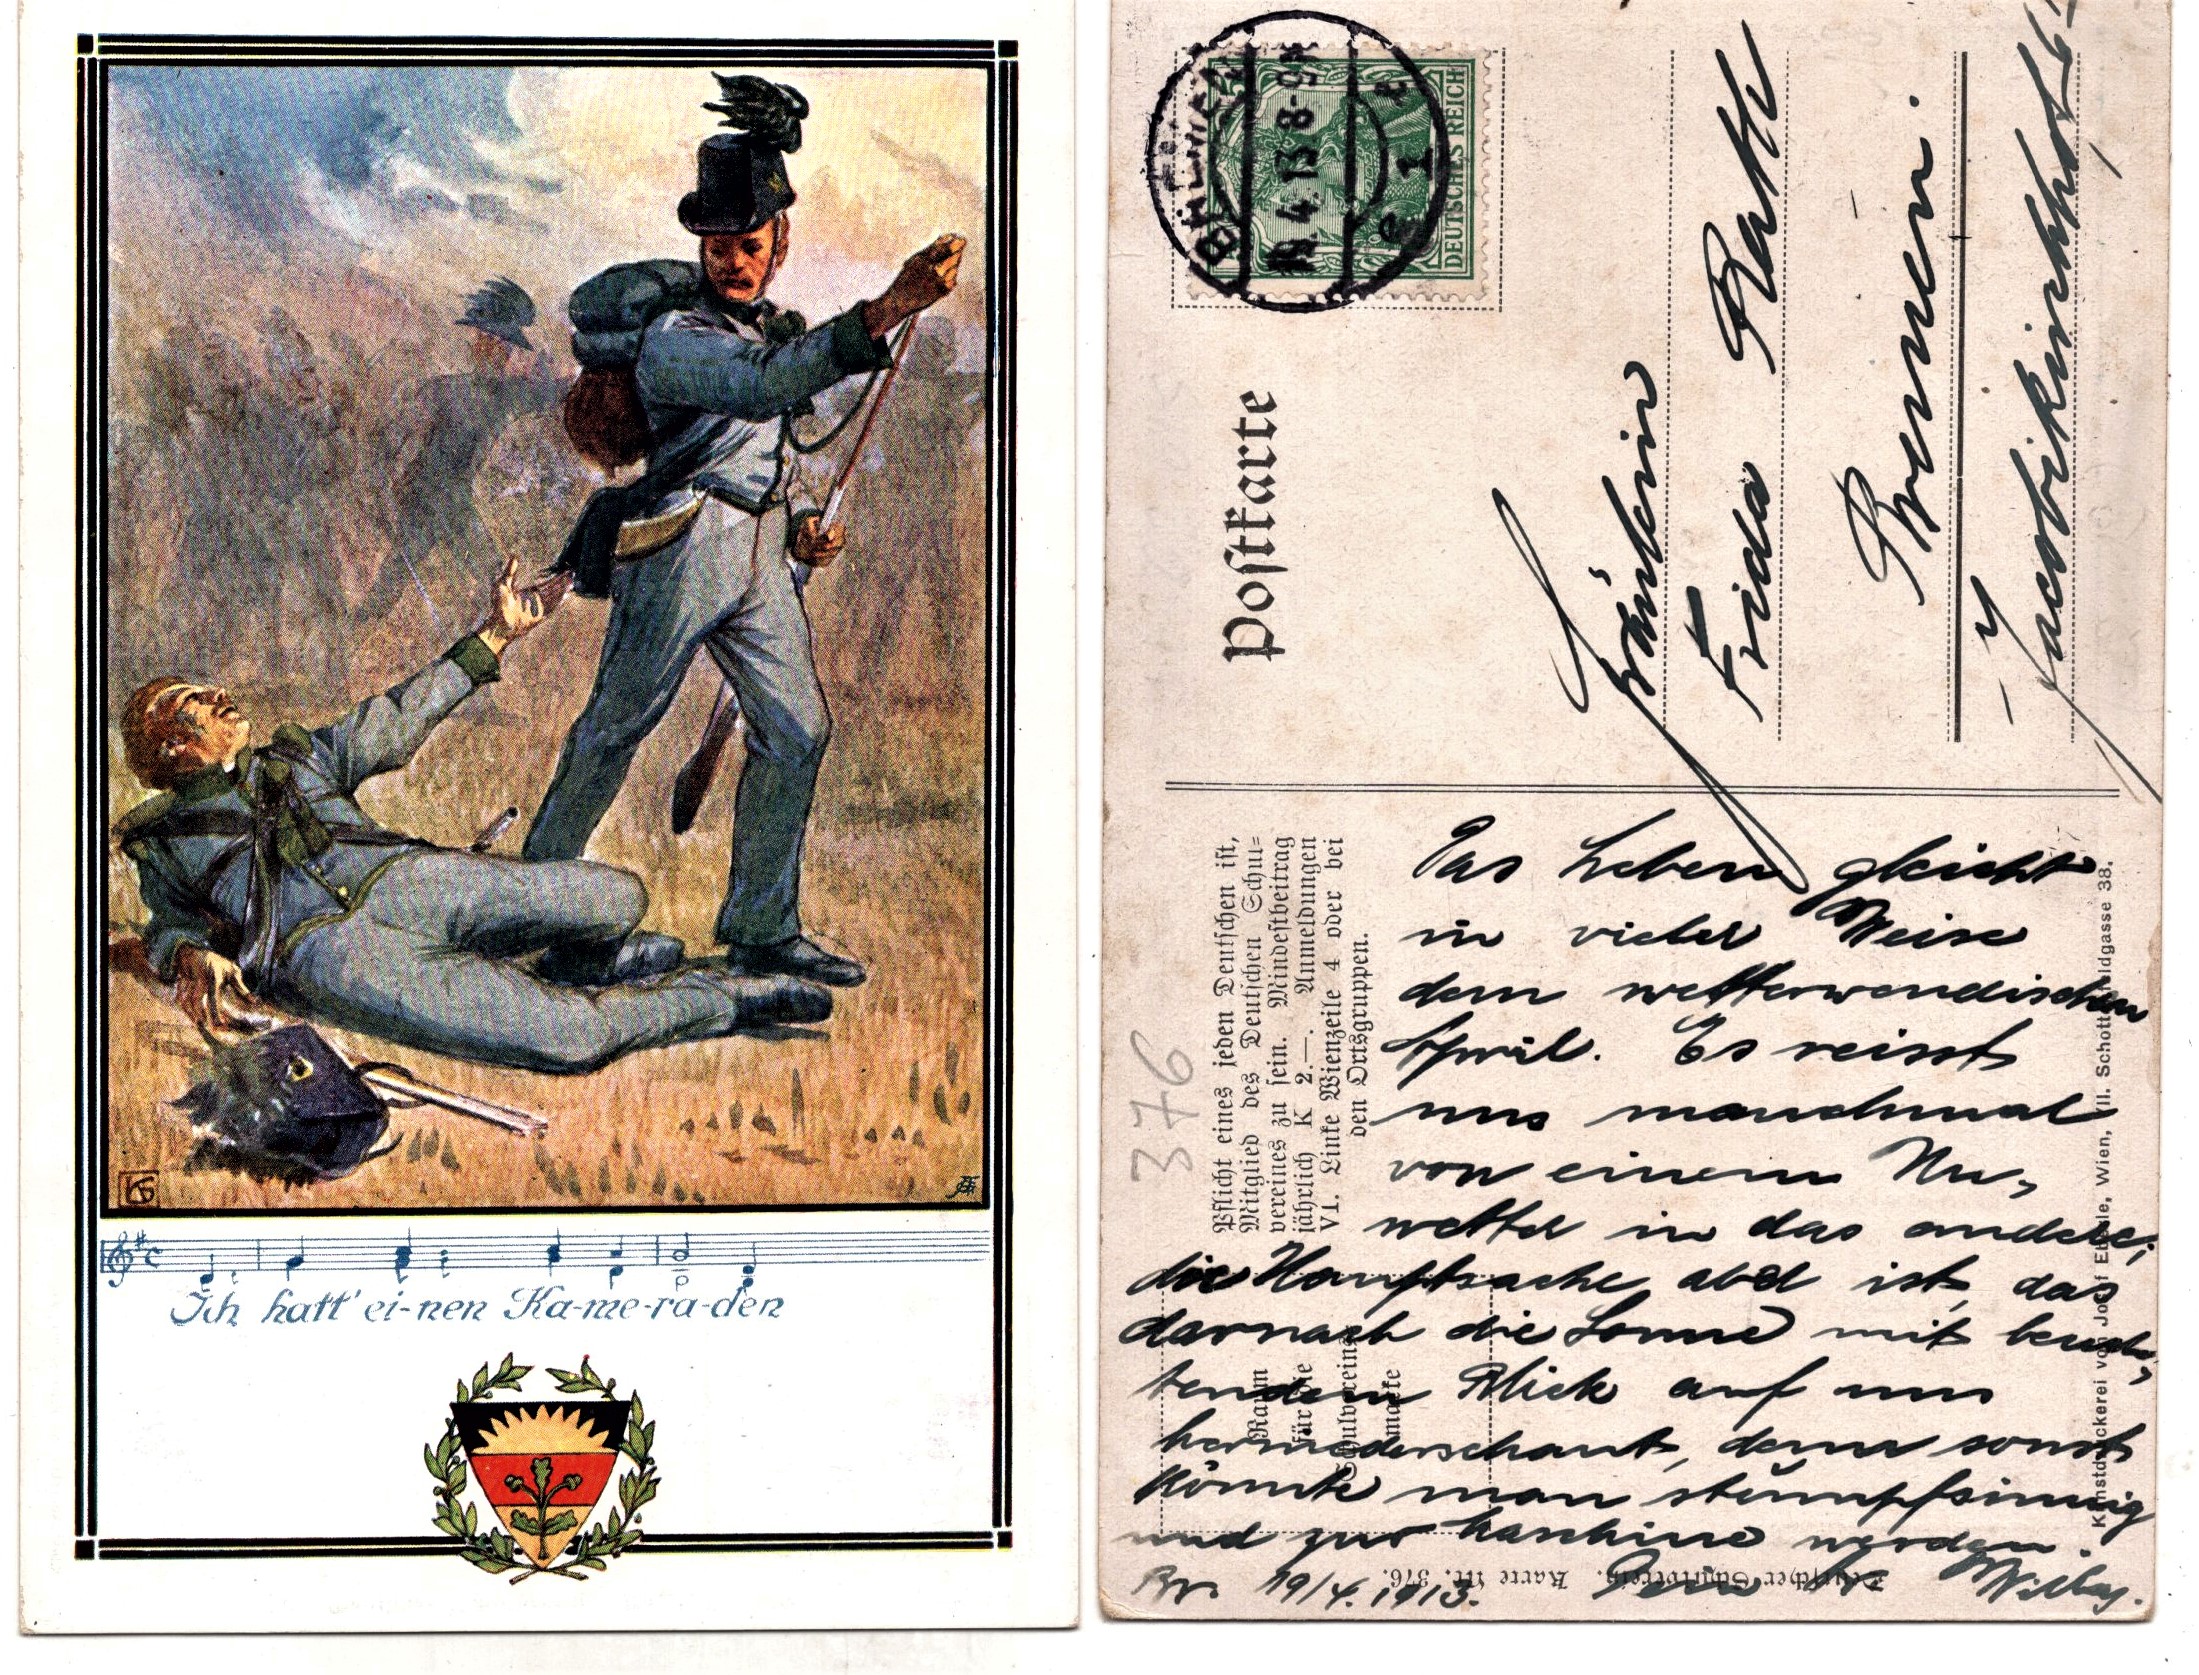 Ich hatt' ei-nen Ka-me-ra-den
Postkarte
DEUTSCHES REICH
19.4.13 8-9
Fräulein
Frida
Bremen.
Jacobikirchhof
Pflicht eines jeden Deutschen ist,
Mitglied des Deutschen Schul=
vereines zu sein. Mindestbeitrag
jährlich K 2.—. Anmeldungen
VI. Linke Wienzeile 4 oder bei
den Ortsgruppen.
376
Das Leben gleicht
in vieler Weise
dem wetterwendischen
April. Es reisst
uns manchmal
von einem Un-
wetter in das andere;
die Hauptsache aber ist, das
darnach die Sonne mit
Blick auf uns
herniederschaut, denn sonst
könnte man stumpfsinnig
und zur Maschine werden.
Br. 19/4. 1913.
Raum
für die
Schulvereins
marke
Deutscher Schulverein. Karte Nr. 376.
Kunstdruckerei von Josef Eberle, Wien, VII. Schottenfeldgasse 38.